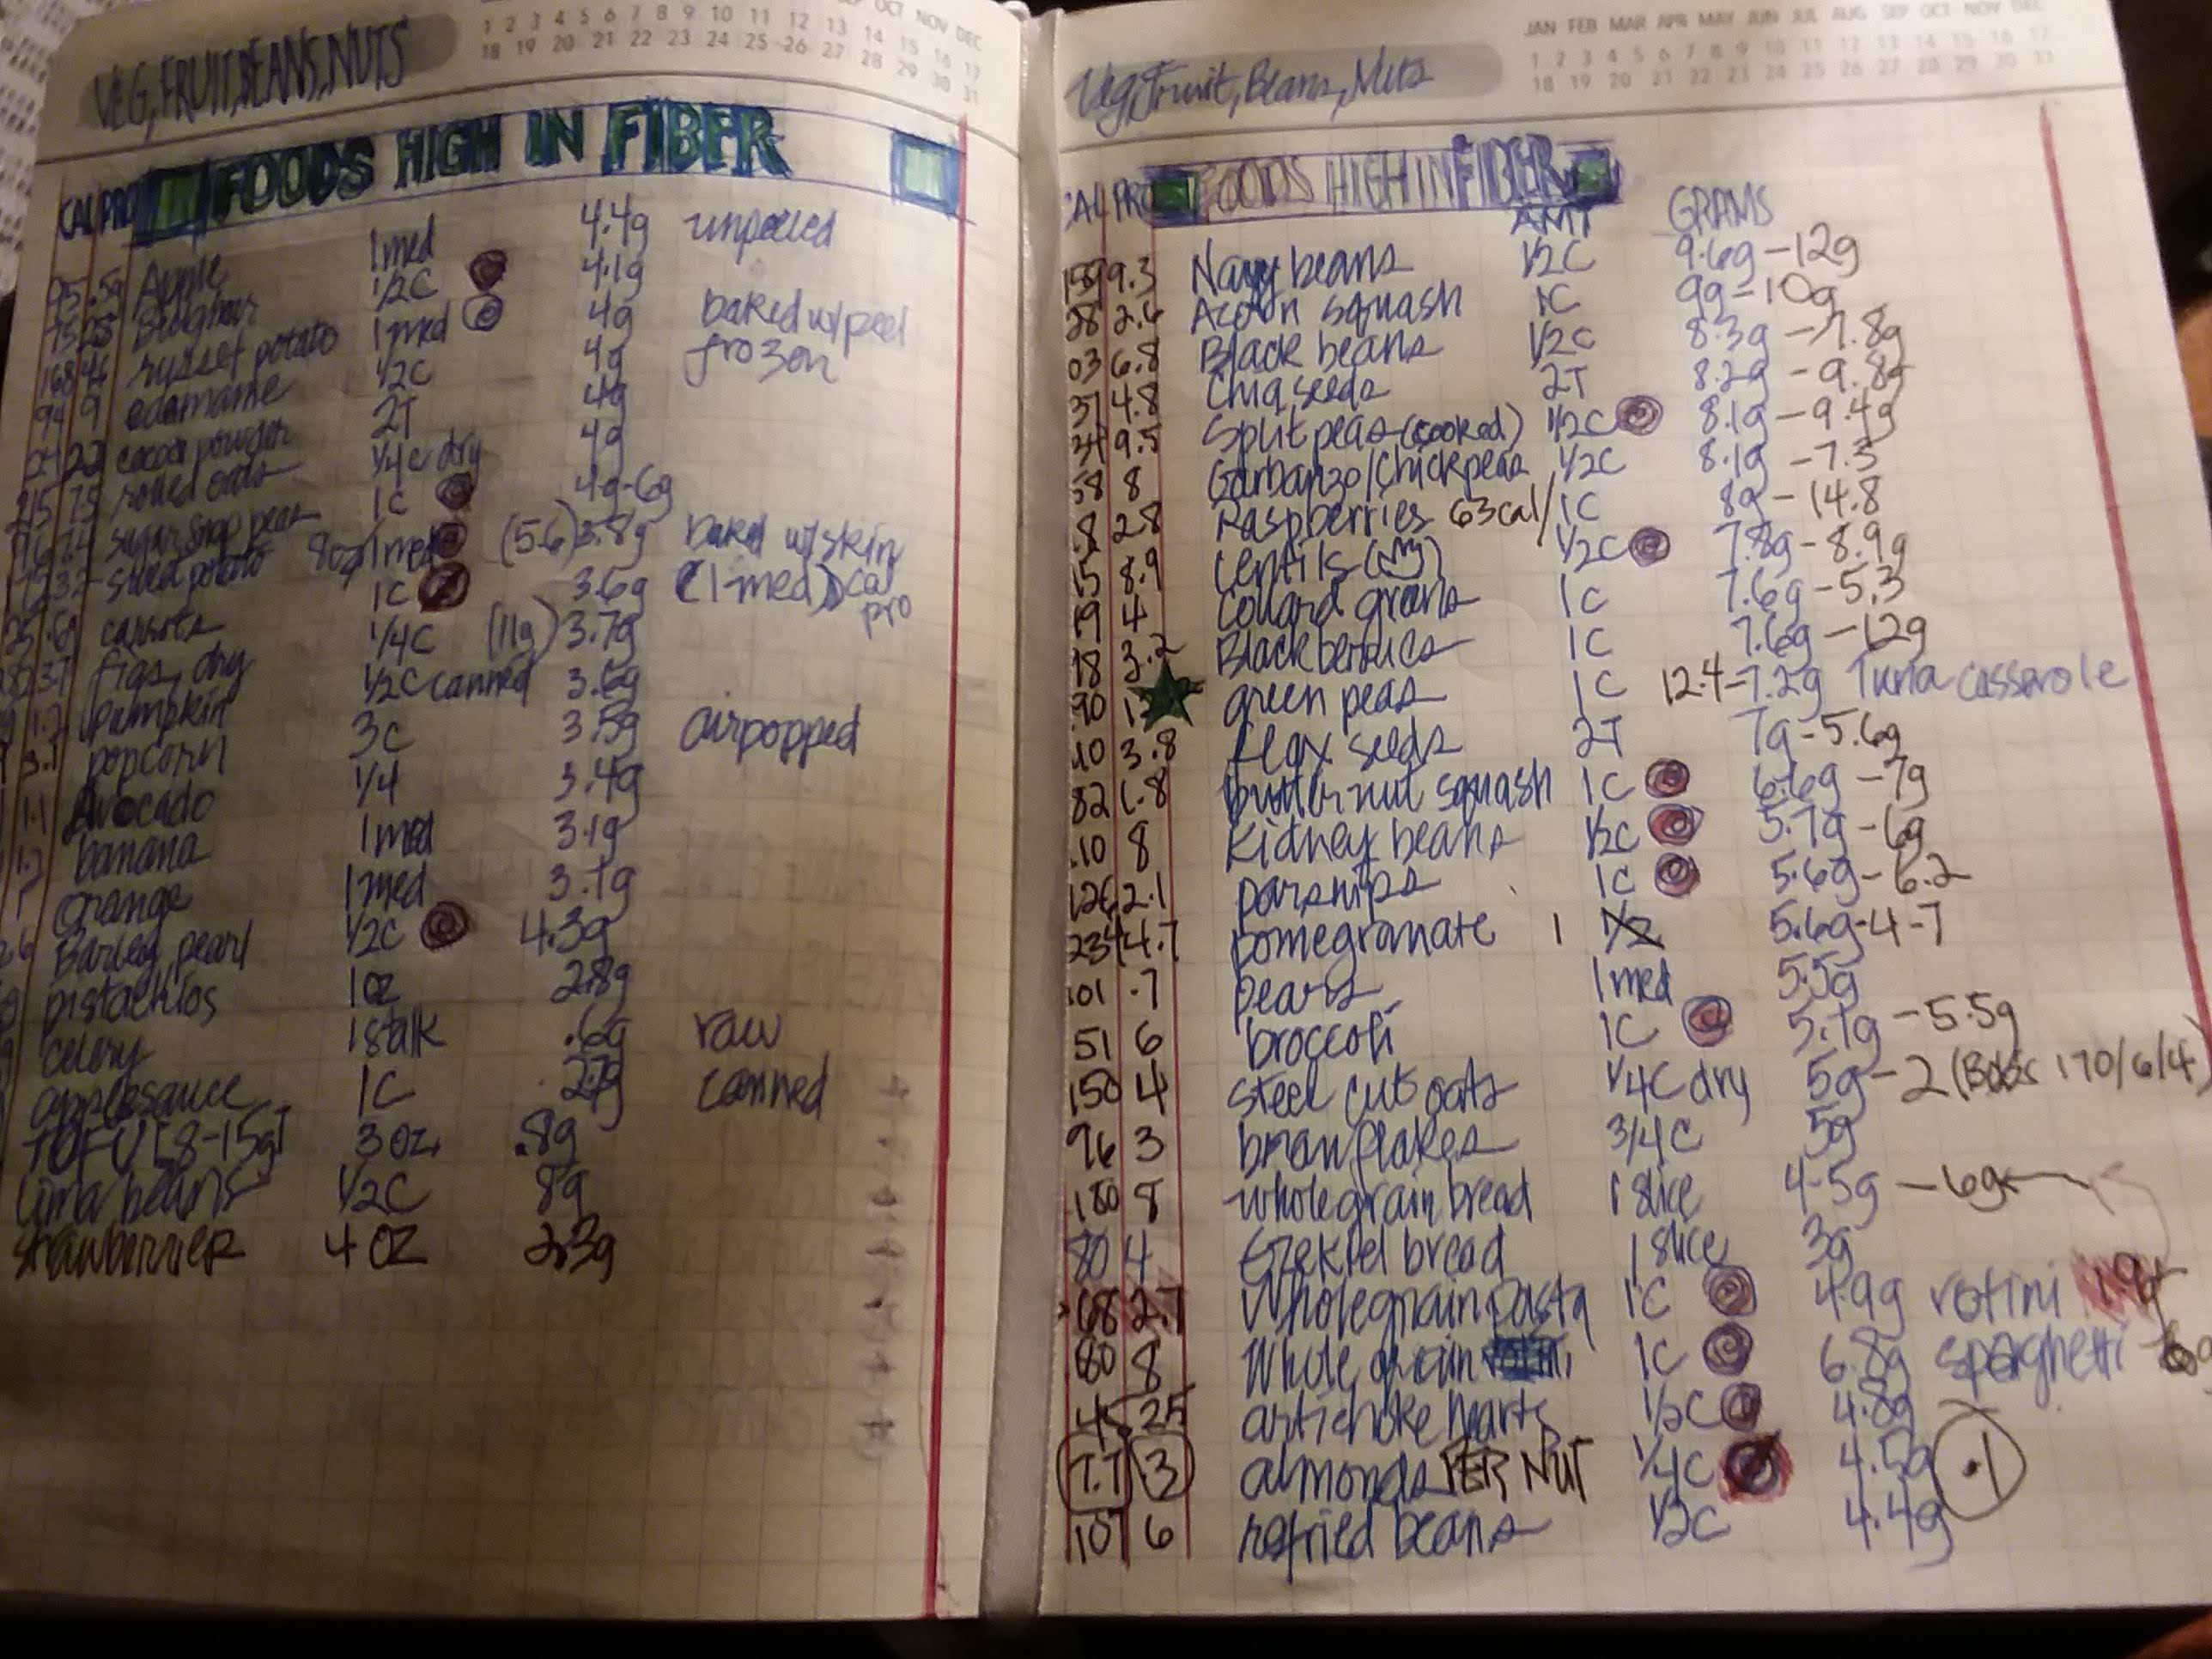 OCT NOV DEC
1 2 3 4 5 6 7 8 9 10 11 12 13 14 15 16 17
18 19 20 21 22 23 24 25 26 27 28 29 30 31
VEG, FRUIT, BEANS, NUTS
CAL PRO FOODS HIGH IN FIBER
95 .5g Apple 1 med 4.4g unpeeled
1/2C 4.1g
168 russet potato 1 med 4g baked w/peel
94 9 edamame 1/2C 4g frozen
cocoa powder 2T 4g
rolled oats 1/4c dry 4g
sugar snap peas 1C 4g-6g
sweet potato 8oz/1med (5.6) 3.8g baked w/skin
carrots 1C 3.6g (1 med) cal pro
figs, dry 1/4C (11g) 3.7g
1.2 pumpkin 1/2C canned 3.6g
3.1 popcorn 3C 3.5g airpopped
1.1 Avocado 1/4 3.4g
banana 1med 3.1g
orange 1med 3.1g
Barley, pearl 1/2C 4.3g
pistachios 1oz 2.8g
celery 1stalk .6g raw
applesauce 1C 2.7g canned
TOFU [8-15g] 3 oz. .8g
lima beans 1/2C 8g
strawberries 4 OZ 2.3g
JAN FEB MAR APR MAY JUN JUL AUG SEP OCT NOV DEC
1 2 3 4 5 6 7 8 9 10 11 12 13 14 15 16 17
18 19 20 21 22 23 24 25 26 27 28 29 30 31
Veg, Fruit, Beans, Nuts
CAL PRO FOODS HIGH IN FIBER
AMT GRAMS
159 9.3 Navy beans 1/2C 9.6g-12g
2.6 Acorn squash 1C 9g-10g
03 6.8 Black beans 1/2C 8.3g-7.8g
37 4.8 Chia seeds 2T 8.2g-9.8g
9.5 Split peas (cooked) 1/2C 8.1g-9.4g
8 Garbanzo/Chickpeas 1/2C 8.1g-7.5
.8 2.8 Raspberries 63cal/1C 8g-14.8
15 8.9 Lentils 1/2C 7.8g-8.9g
4 Collard greens 1C 7.6g-5.3
18 3.2 Blackberries 1C 7.6g-12g
90 green peas 1C 12.4-7.2g Tuna casserole
10 3.8 Flax seeds 2T 7g-5.6g
82 1.8 butternut squash 1C 6.6g-7g
10 8 Kidney beans 1/2C 5.7g-6g
126 2.1 parsnips 1C 5.6g-6.2
234 4.7 pomegranate 1 1/2 5.6g-4-7
101 .7 pears 1med 5.5g
51 6 broccoli 1C 5.1g-5.5g
150 4 steel cut oats 1/4C dry 5g-2 (Bobs 170/6/4)
96 3 bran flakes 3/4C 5g
180 8 whole grain bread 1 slice 4-5g-6g
80 4 Ezekiel bread 1 slice 3g
68 2.7 Whole grain pasta 1C 4.9g rotini
80 8 Whole grain 1C 6.8g spaghetti
45 2.5 artichoke hearts 1/2C 4.8g
7.7 3 almonds PER NUT 1/4C 4.5g .1
107 6 refried beans 1/2C 4.4g